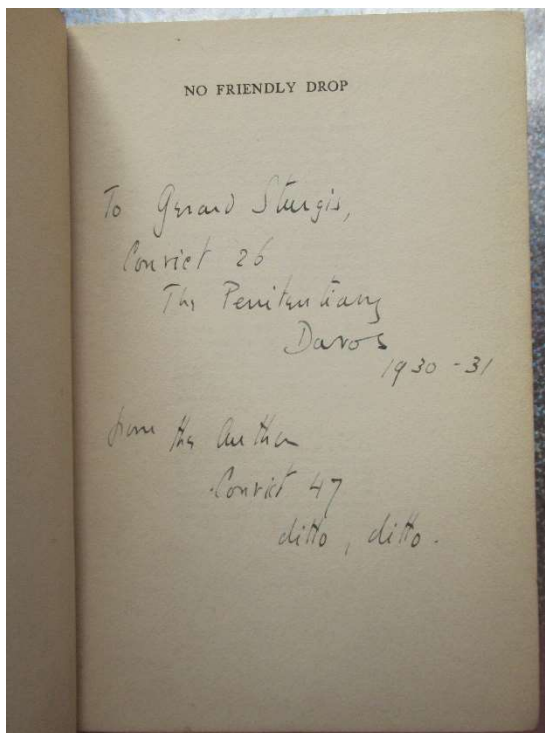 NO FRIENDLY DROP
To Gerard Sturgis,
Convict 26
The Penitentiary
Davos
1930-31
from the Author
Convict 47
ditto, ditto.